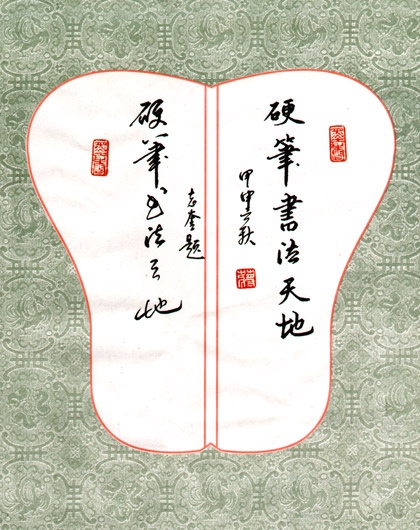 硬筆書法天地
甲申之秋
志奎題
硬筆书法天地